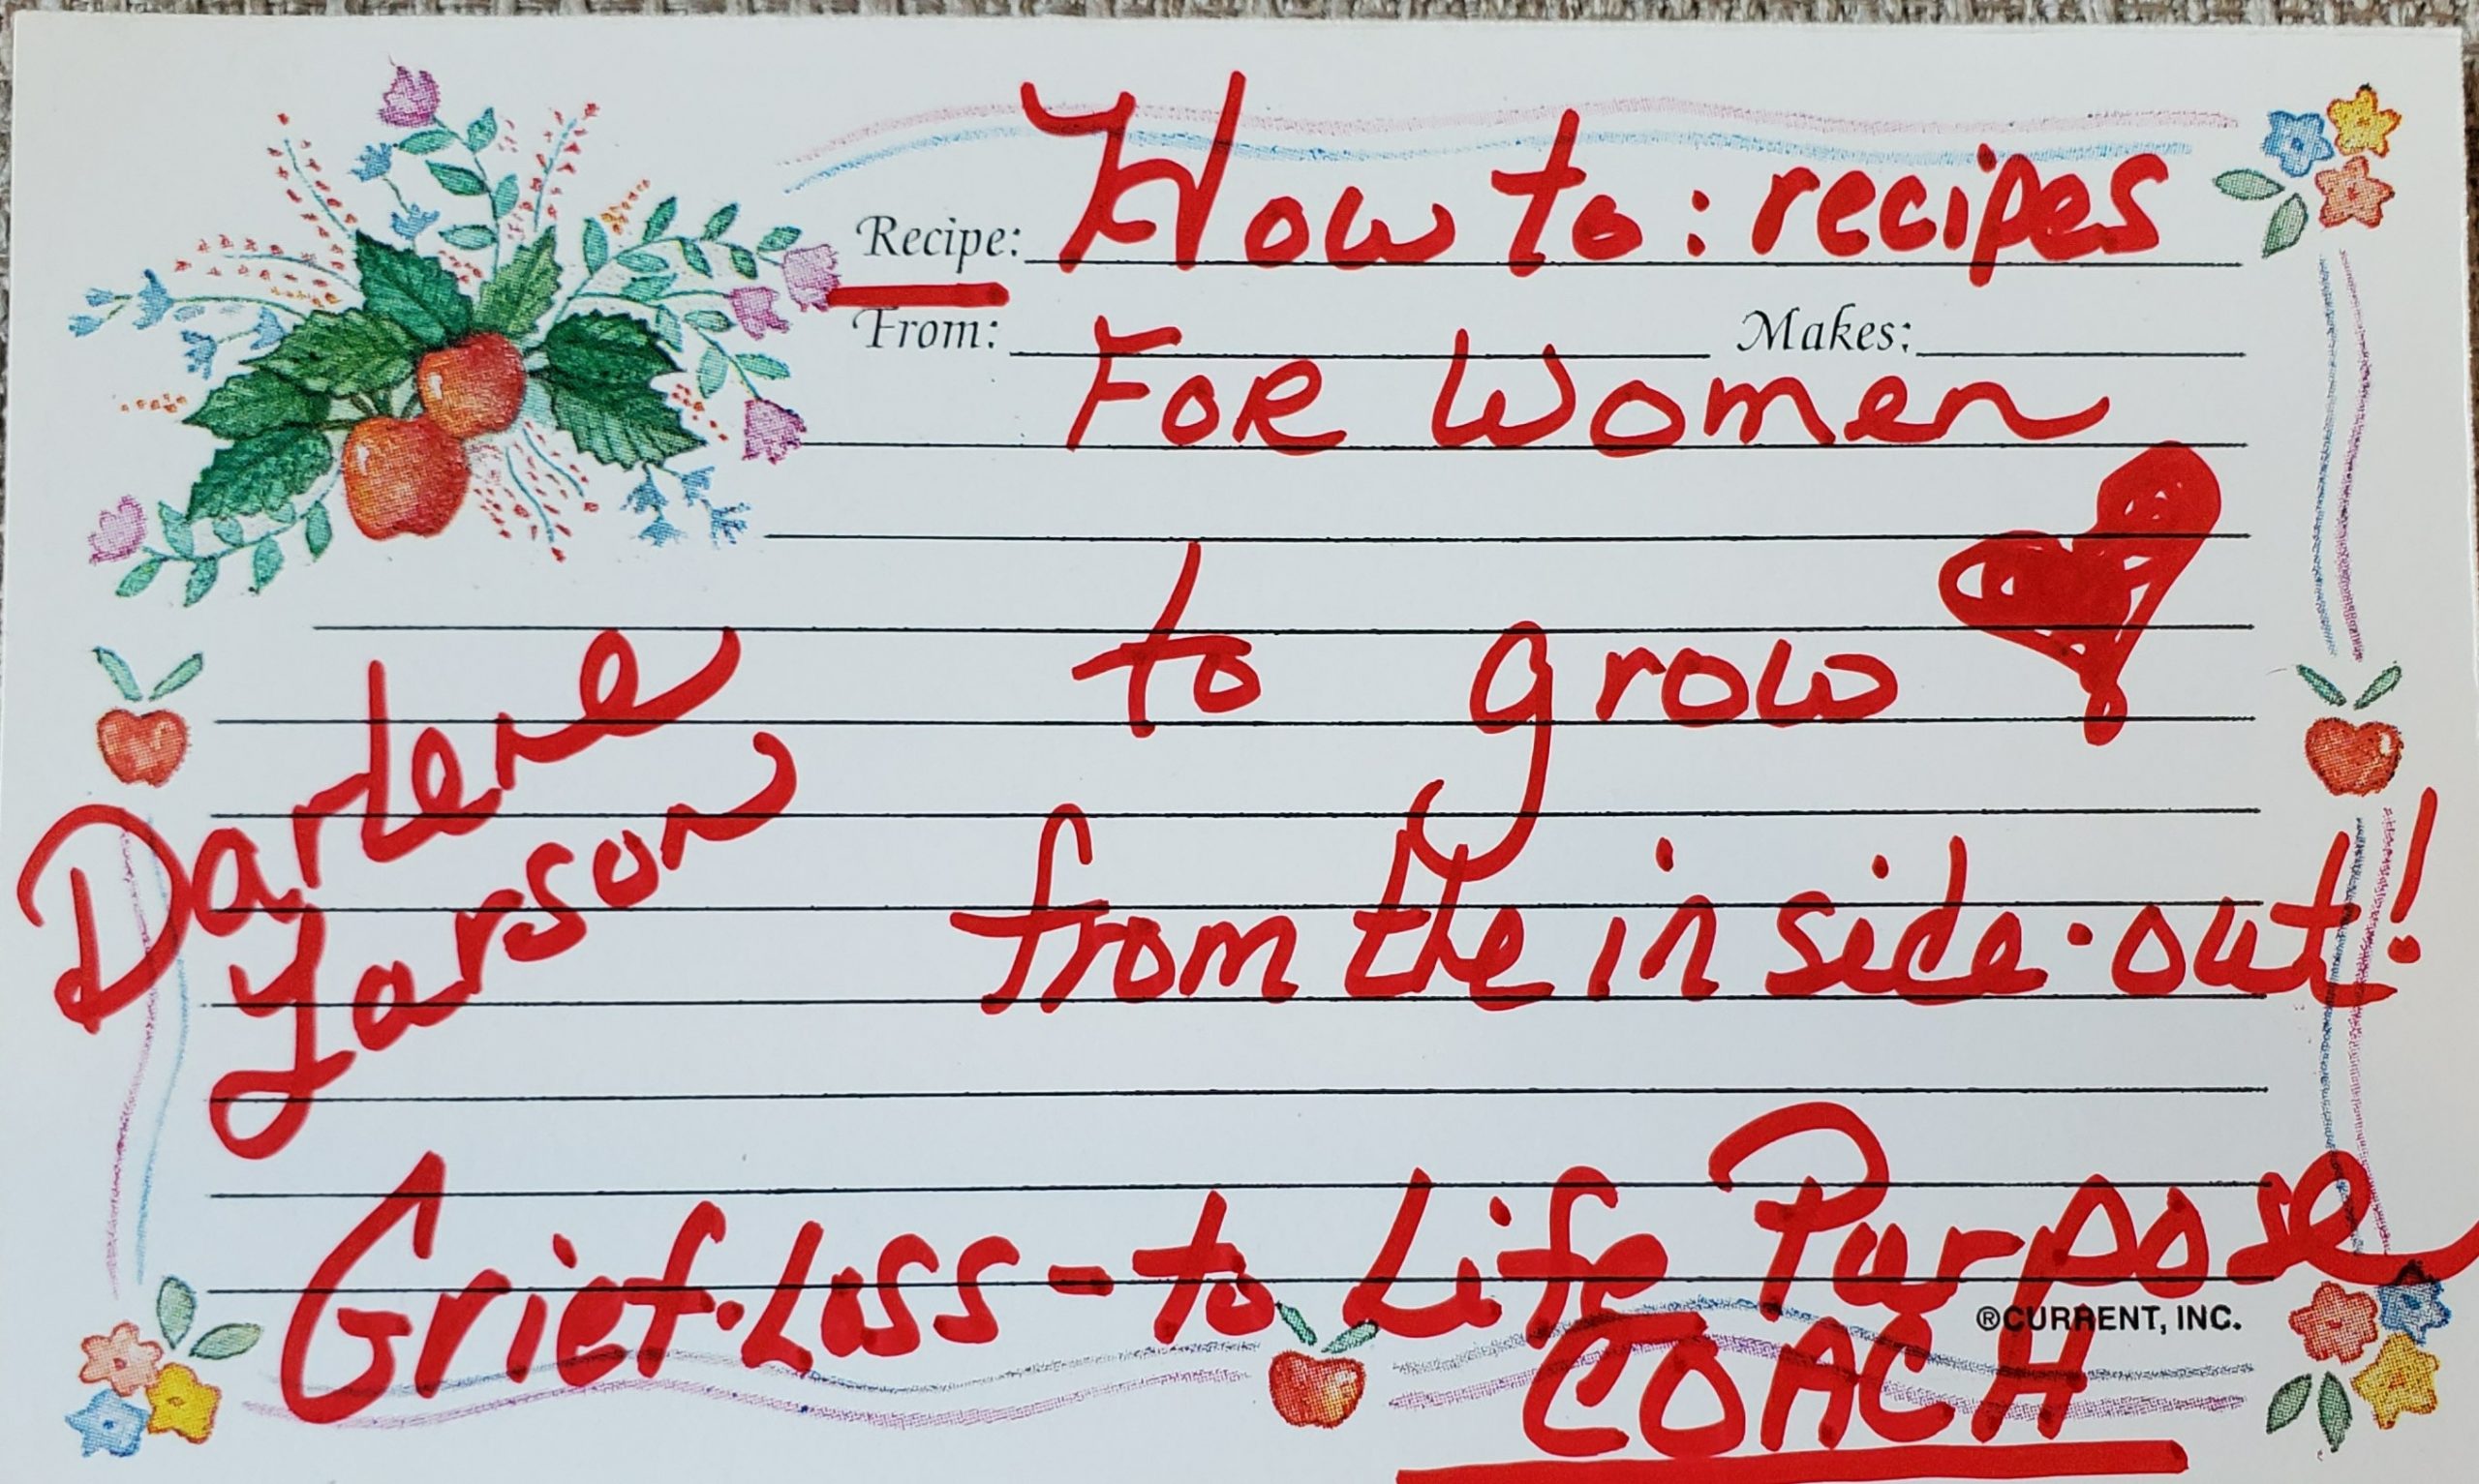 Recipe: How to: recipes
From: Makes:
FOR Women
to grow
Darlene
Larson
from the inside·out!
Grief·Loss - to Life Purpose
®CURRENT, INC.
COACH